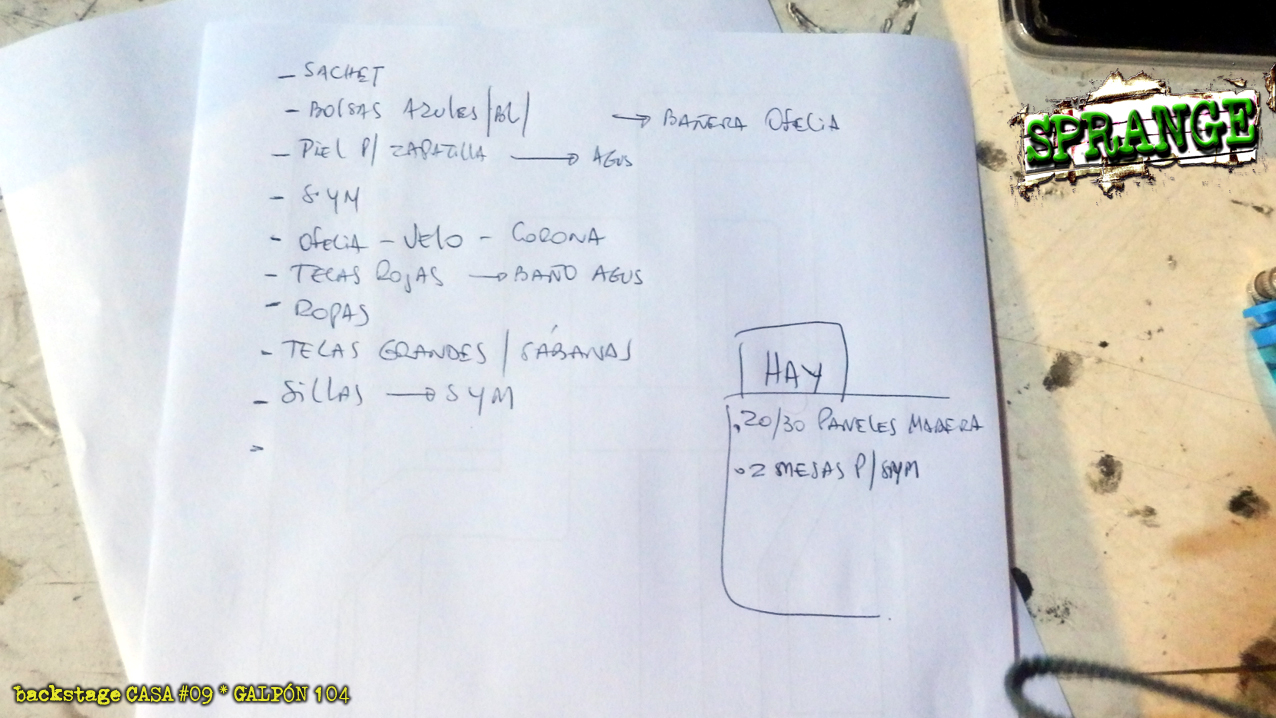 - SACHET
- BOLSAS AZULES/BL/ → BAÑERA OFELIA
- PIEL P/ ZAPATILLA → AGUS
- S.YM
- OFELIA - VELO - CORONA
- TELAS ROJAS → BAÑO AGUS
- ROPAS
- TELAS GRANDES / SÁBANAS
- SILLAS → SYM
-
HAY
. 20/30 PANELES MADERA
. 2 MESAS P/ SYM
SPRANGE
backstage CASA #09 * GALPÓN 104